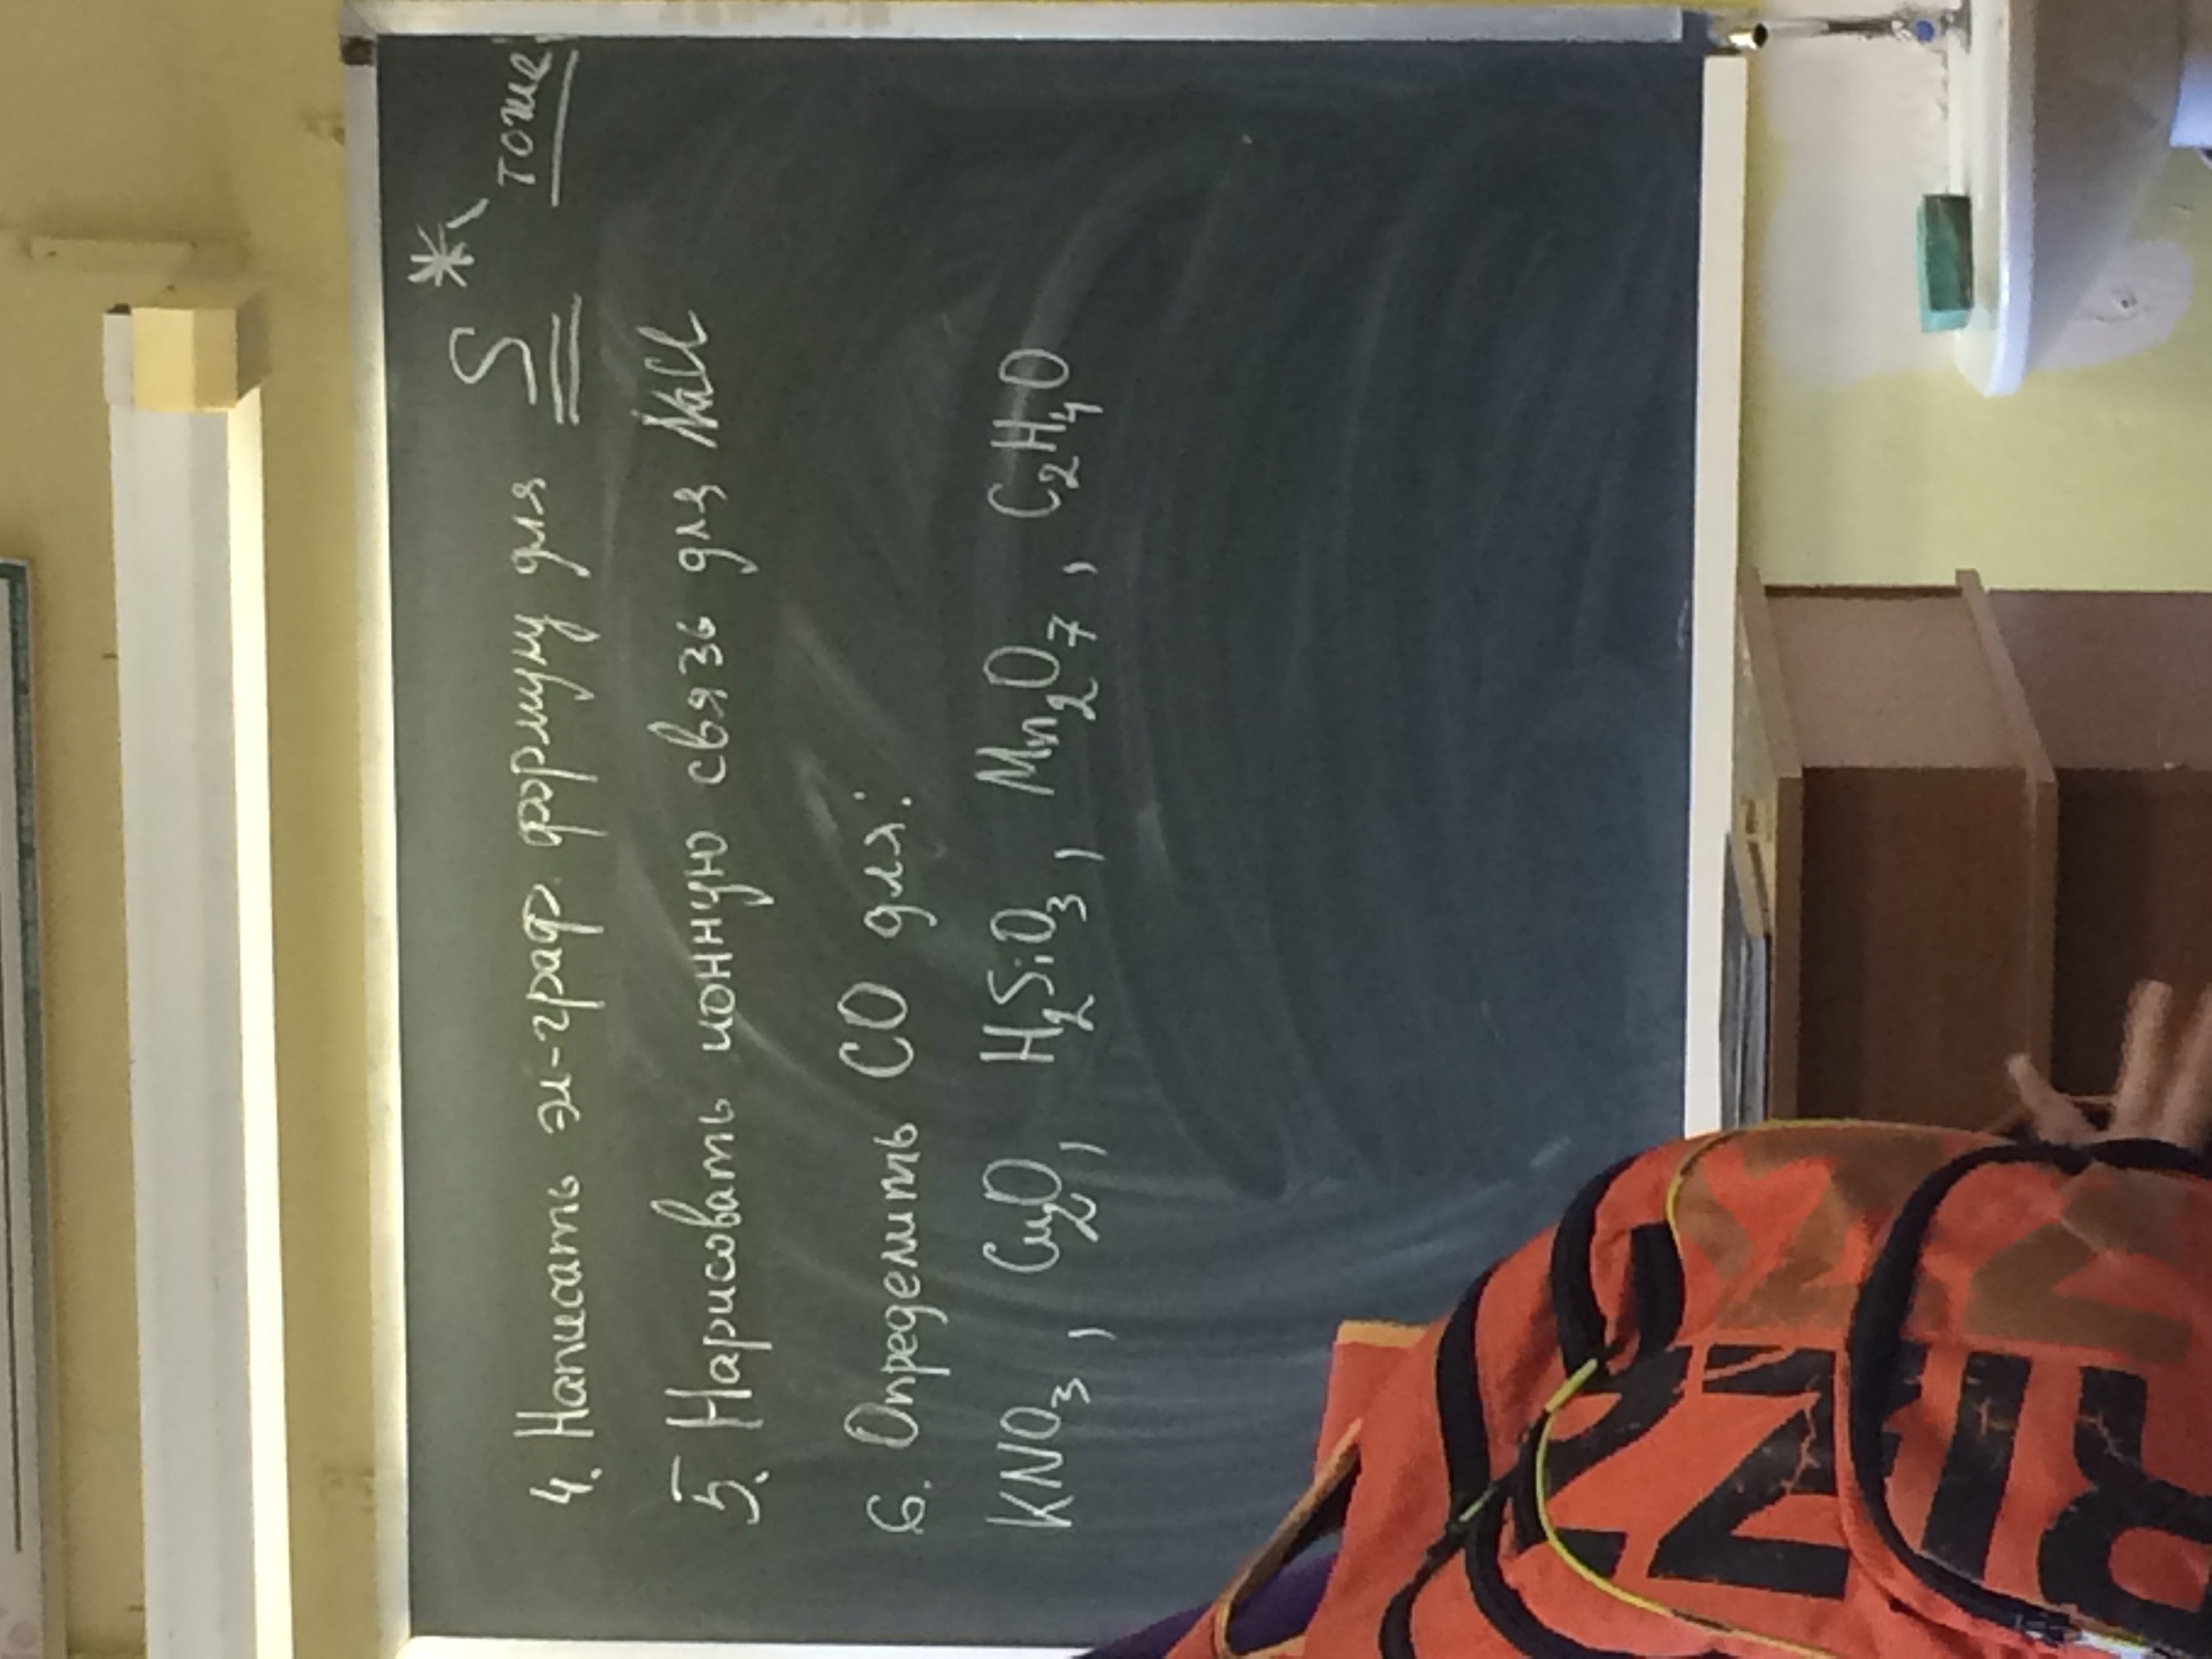 4. Написать эл-граф. формулу для S* тоже
5. Нарисовать ионную связь для NaCl
6. Определить СО для:
KNO₃, Cu₂O, H₂SiO₃, Mn₂O₇, C₂H₄O